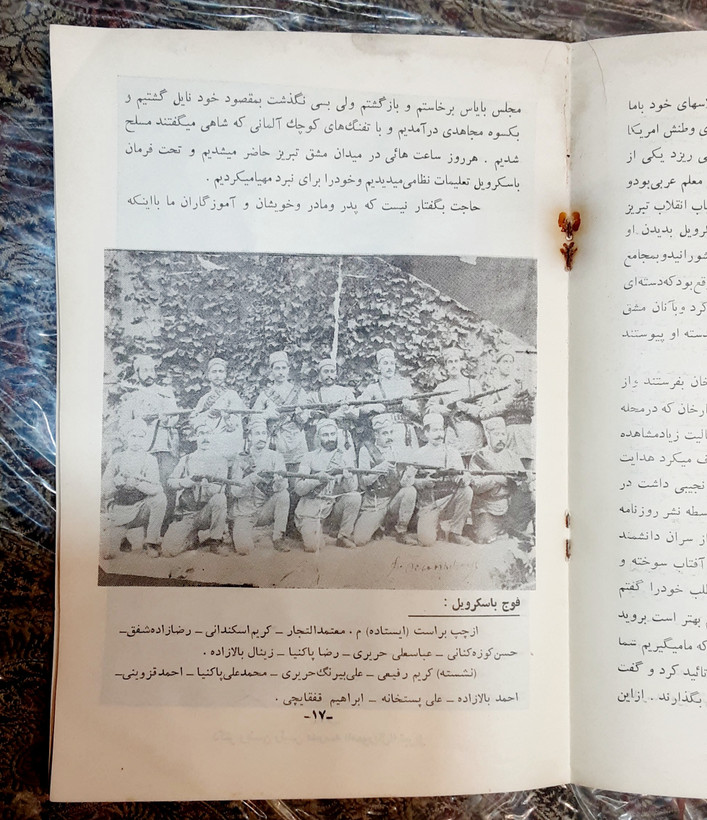 مجلس بایاس برخاستم و بازگشتم ولی بسی نگذشت بمقصود خود نایل گشتیم و
بکسوه مجاهدی درآمدیم و با تفنگ‌های کوچك آلمانی که شاهی میگفتند مسلح
شدیم . هرروز ساعت هائی در میدان مشق تبریز حاضر میشدیم و تحت فرمان
باسکرویل تعلیمات نظامی‌میدیدیم وخودرا برای نبرد مهیامیکردیم .
حاجت بگفتار نیست که پدر ومادر وخویشان و آموزگاران ما بااینکه
فوج باسکرویل :
ازچپ براست (ایستاده) م . معتمدالتجار ــ کریم‌اسکندانی ــ رضازاده‌شفق ــ
حسن‌کوزه‌کنانی ــ عباسعلی حریری ــ رضا پاکنیا ــ زینال بالازاده .
(نشسته) کریم رفیعی ــ علی‌بیرنگ‌حریری ــ محمدعلی‌پاکنیا ــ احمدقزوینی ــ
احمد بالازاده ــ علی پستخانه ــ ابراهیم قفقایچی .
ــ۱۷ــ
لاسهای خود باما
ی وطنش امریکا
ی ریزد یکی از
معلم عربی‌بودو
اب انقلاب تبریز
کرویل بدیدن او
شورانیدوبمجامع
قع‌بودکه‌دسته‌ای
کرد وباآنان مشق
دسته او پیوستند
خان بفرستند واز
ارخان که درمحله
الیت زیادمشاهده
ف میکرد هدایت
نجیبی داشت در
سطه نشر روزنامه
از سران دانشمند
آفتاب سوخته و
لب خودرا گفتم
بهتر است بروید
که مامیگیریم شما
تائید کرد و گفت
بگذارند . ازاین